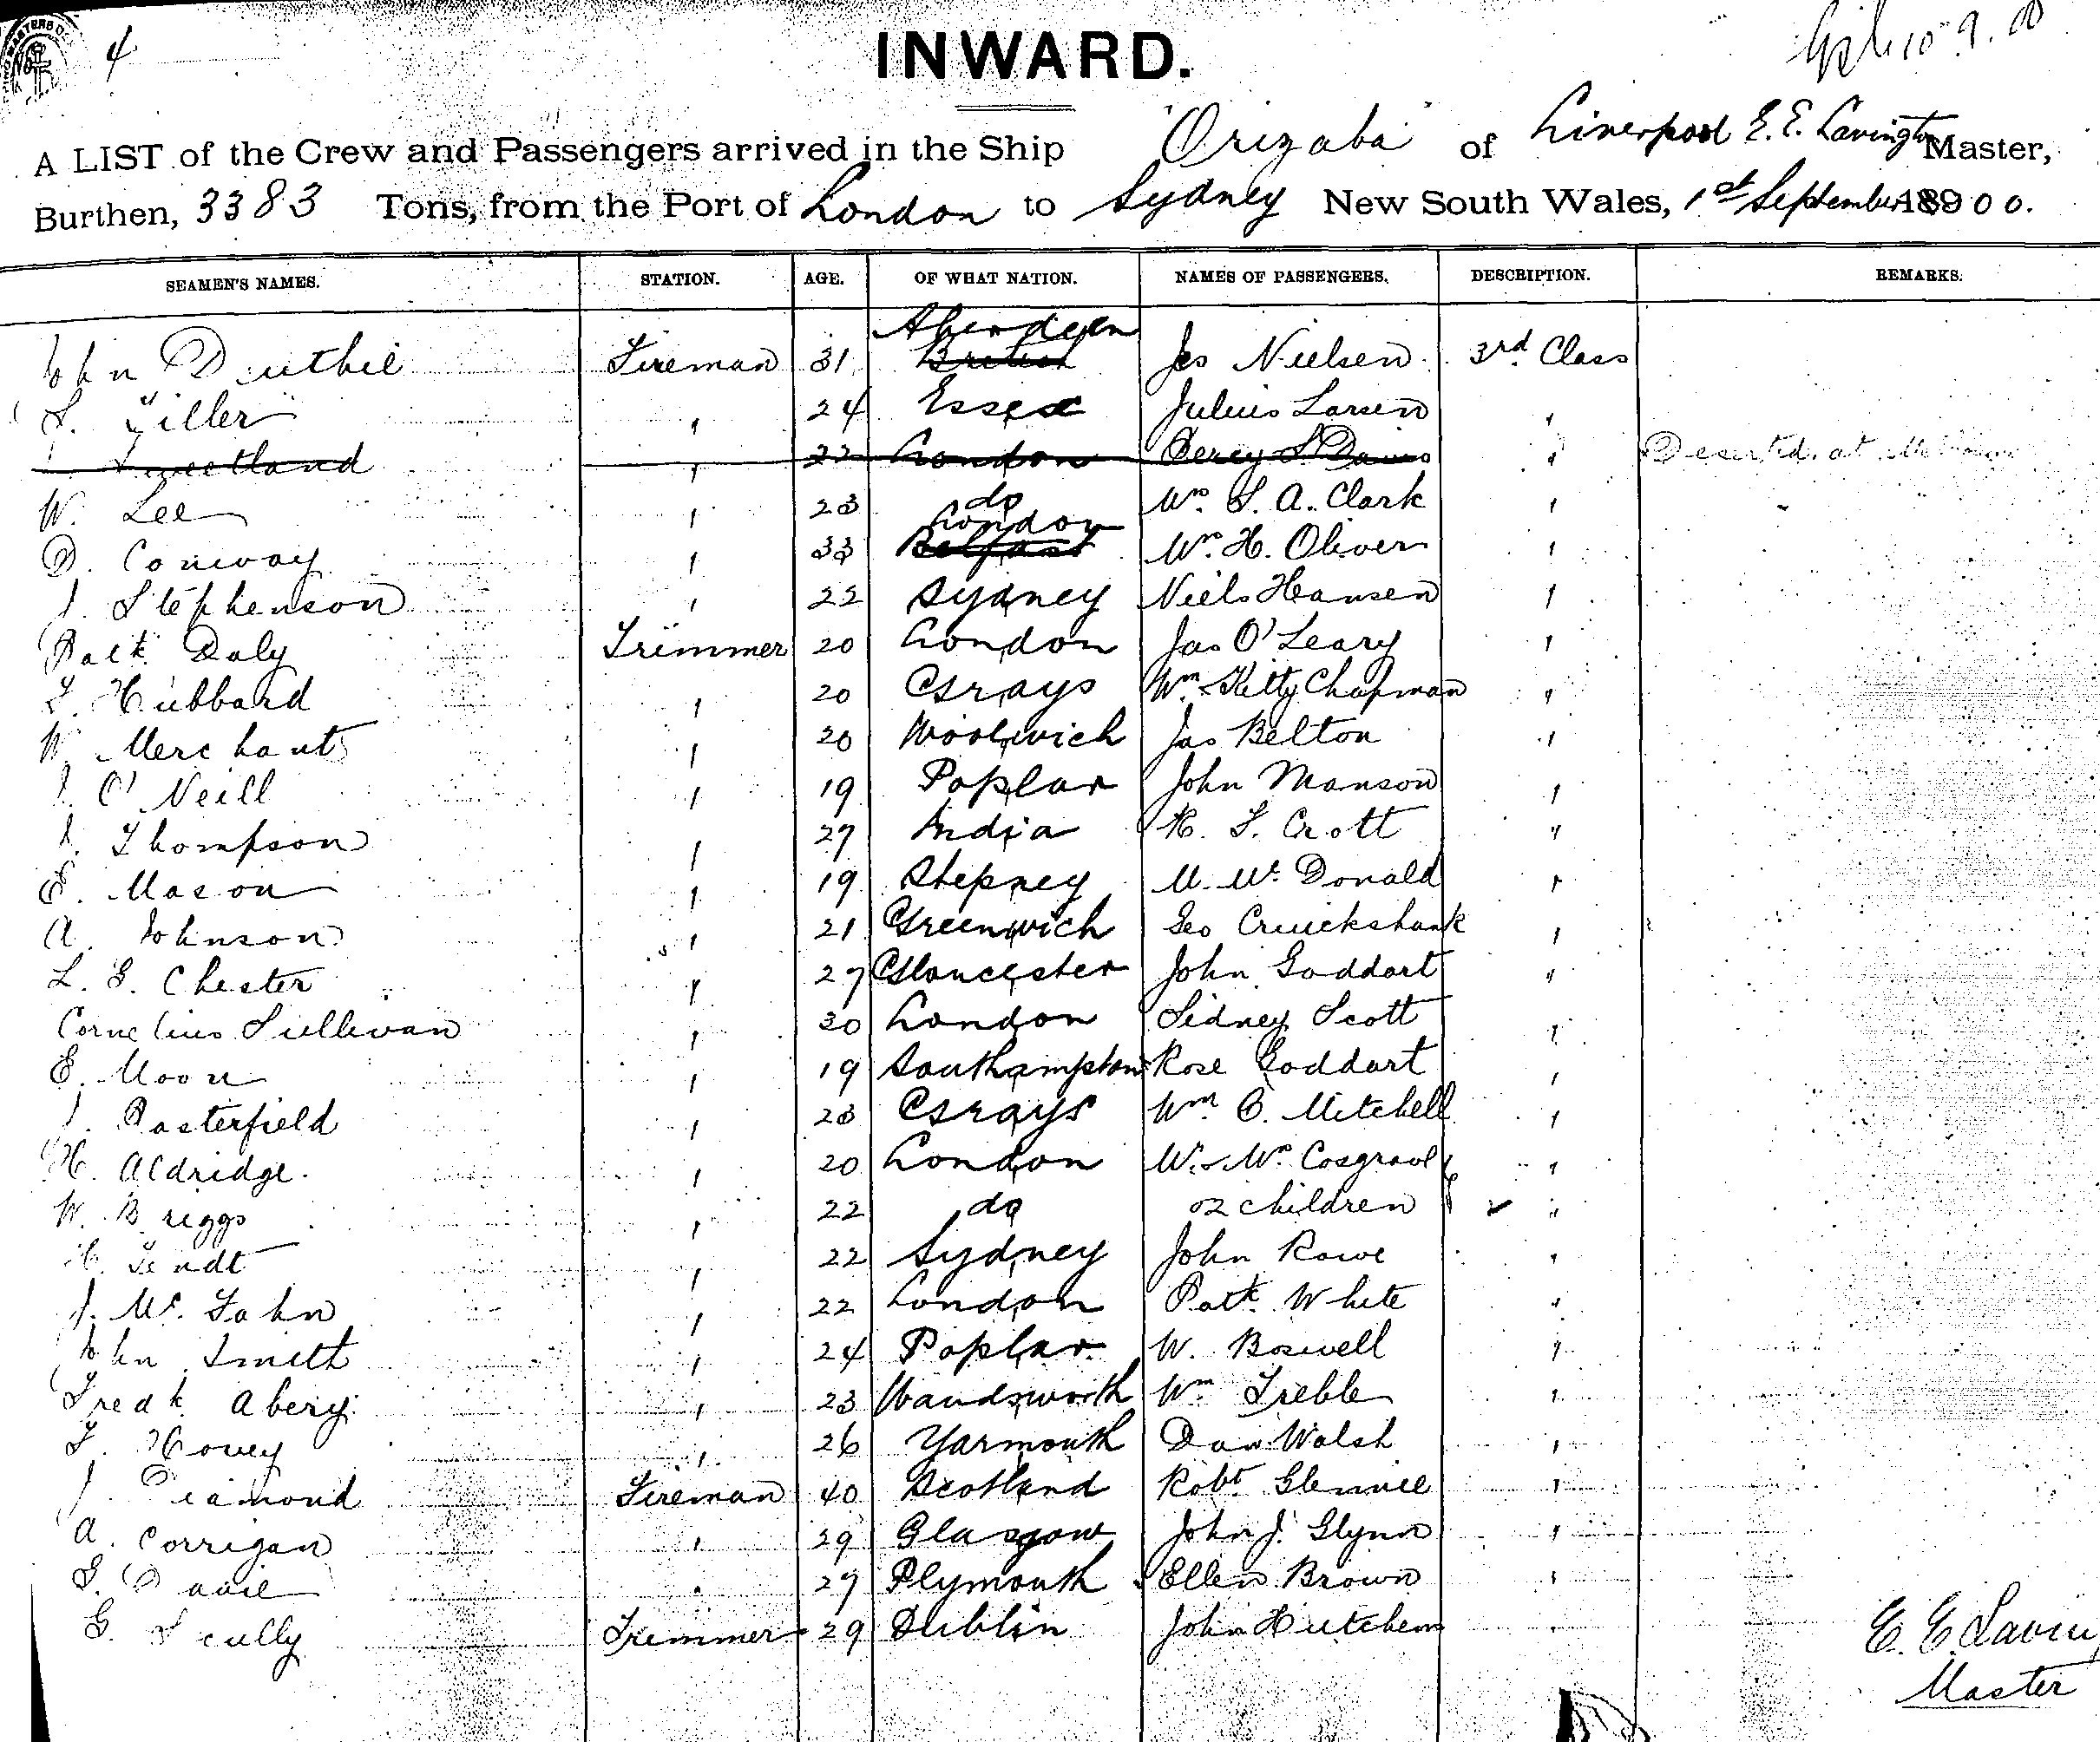 4
INWARD.
A LIST of the Crew and Passengers arrived in the Ship "Orizaba" of Liverpool E. E. Lavington Master,
Burthen, 3383 Tons, from the Port of London to Sydney New South Wales, 1st September 18900.
SEAMEN'S NAMES. STATION. AGE. OF WHAT NATION. NAMES OF PASSENGERS. DESCRIPTION. REMARKS.
Aberdeen
John Duthie Fireman 31 British Jes Nielsen 3rd Class
S. Tiller " 24 Essex Julius Larsen "
Sweetland " 22 London Percy S. Davis " Deserted at
W. Lee " 23 do Wm. S. A. Clark "
London
D. Conway " 33 Belfast Wm. H. Oliver "
J. Stephenson " 22 Sydney Niels Hansen "
Patk. Daly Trimmer 20 London Jas O'Leary "
T. Hubbard " 20 Grays Wm. Kitty Chapman "
W. Merchant " 20 Woolwich Jas Belton "
J. O'Neill " 19 Poplar John Manson "
J. Thompson " 27 India H. S. Crott "
E. Mason " 19 Stepney M. Mc. Donald "
A. Johnson " 21 Greenwich Geo Cruickshank "
L. G. Chester " 27 Gloucester John Goddart "
Cornelius Sullivan " 30 London Sidney Scott "
E. Moon " 19 Southampton Rose Goddart "
J. Pasterfield " 23 Grays Wm. C. Mitchell "
H. Aldridge. " 20 London Mr. & Mrs. Cosgrave "
W. Briggs " 22 do & 2 children "
C. Tendt " 22 Sydney John Rowe "
J. Mc. Gahn " 22 London Patk. White "
John Smith " 24 Poplar W. Boswell "
Fredk. Abery " 23 Wandsworth Wm Treble "
T. Hovey " 26 Yarmouth Dan Walsh "
J. Diamond Fireman 40 Scotland Robt. Glennie "
A. Corrigan " 29 Glasgow John J. Glynn "
" 27 Plymouth Ellen Brown "
G. Scully Trimmer 29 Dublin John Hutchens "
E. E. Lavin
Master